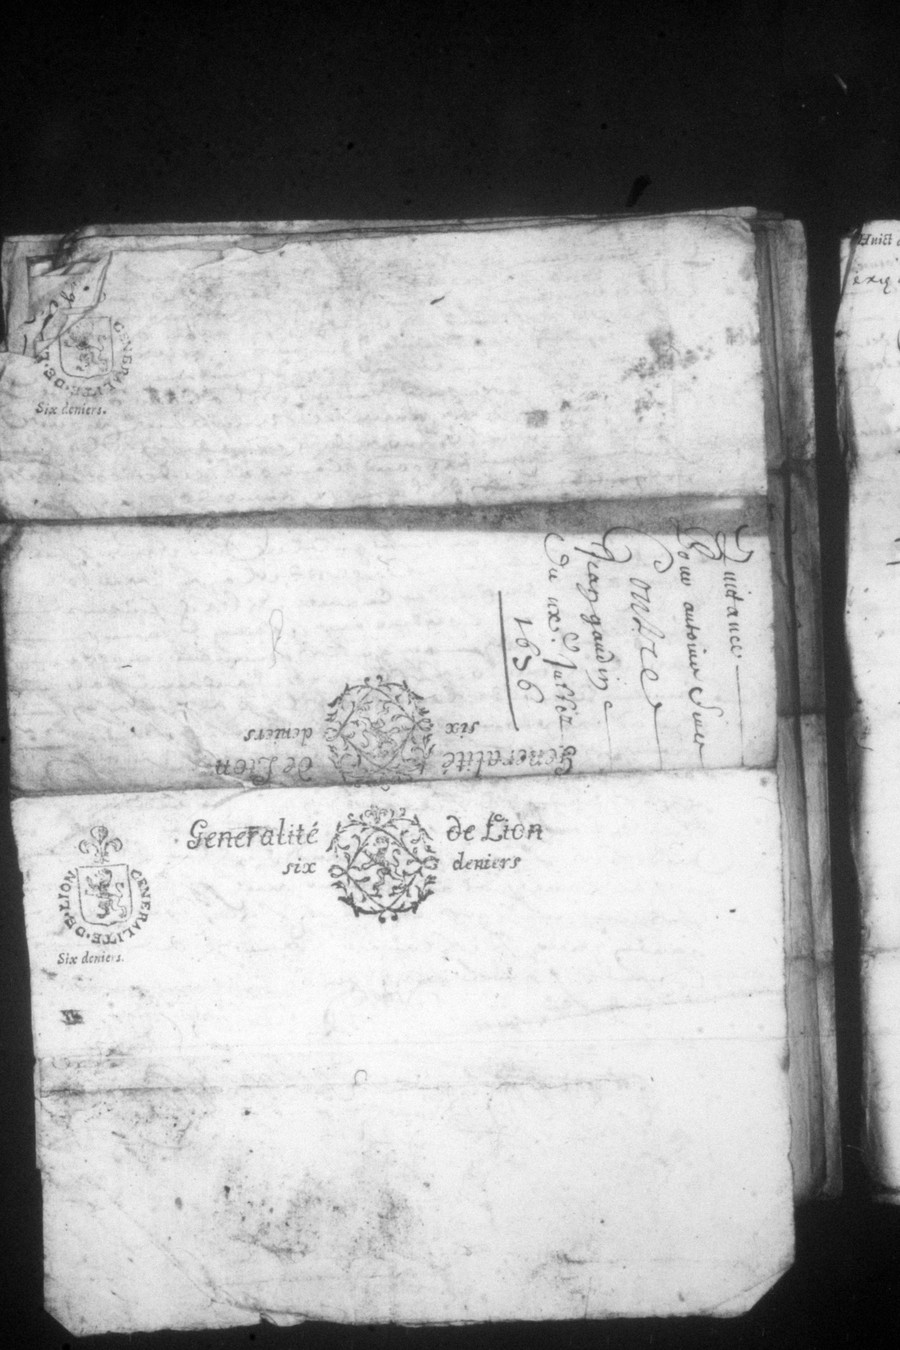 GENERALITE·DE·L
Six deniers.
Quictance
Pour antoine
Contre
Jean gaudin
Du xxe Juillet
1696
six deniers
Generalité de Lion
Generalité de Lion
six deniers
GENERALITE·DE·LION
Six deniers.
Huict